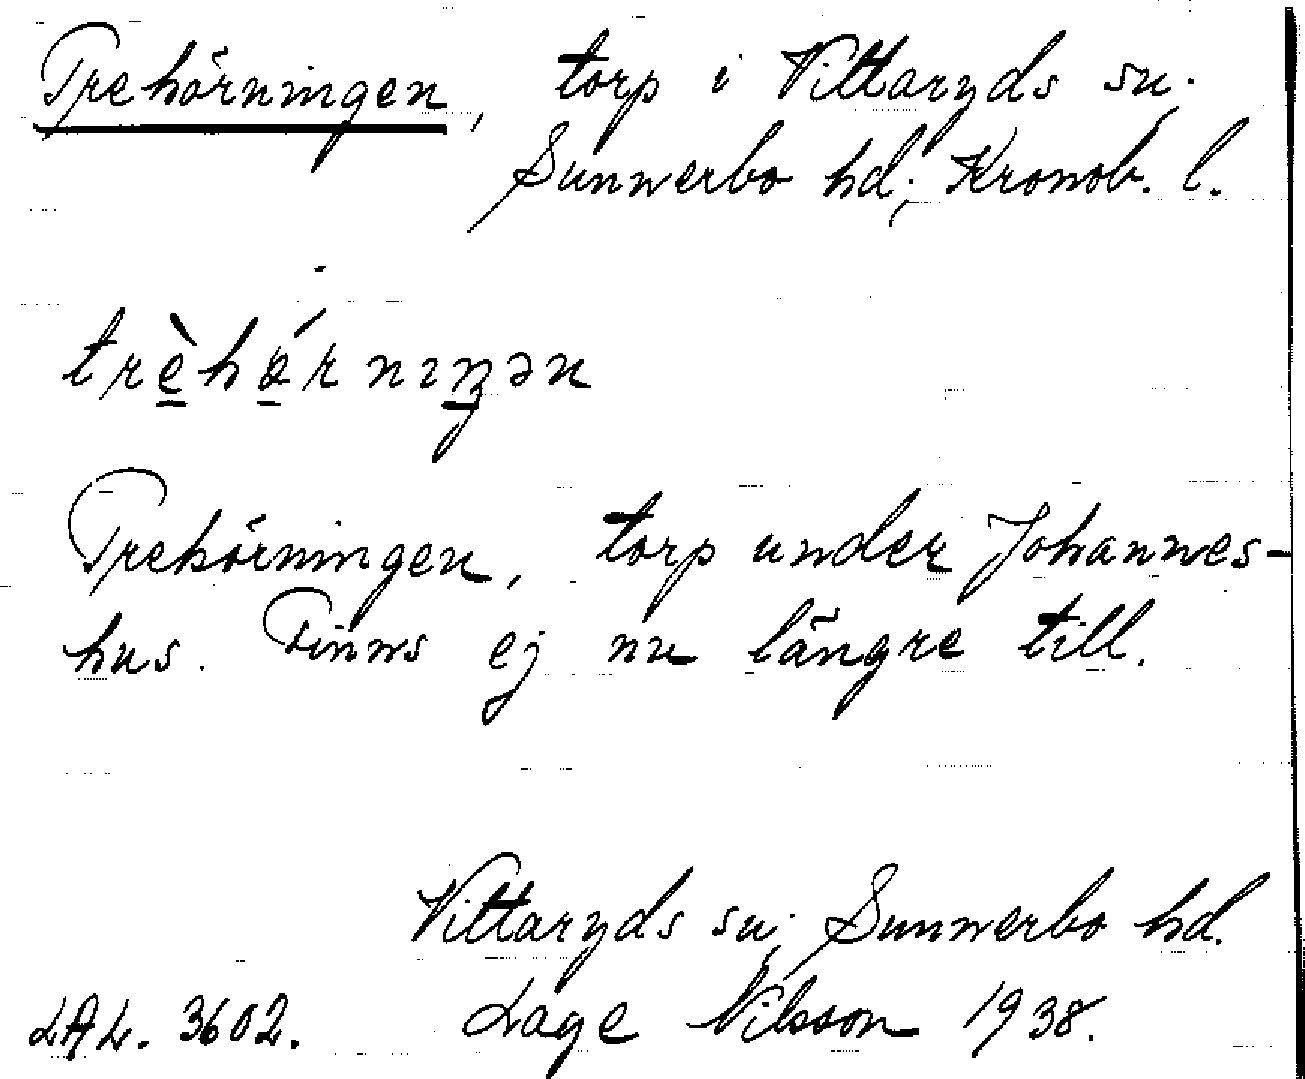 Trehörningen, torp i Vittaryds sn.,
Sunnerbo hd., Kronob. l.
trèhǿrnıŋən
Trehörningen, torp under Johannes-
hus. Finns ej nu längre till.
Vittaryds sn., Sunnerbo hd.
LAL. 3602. Lage Nilsson 1938.